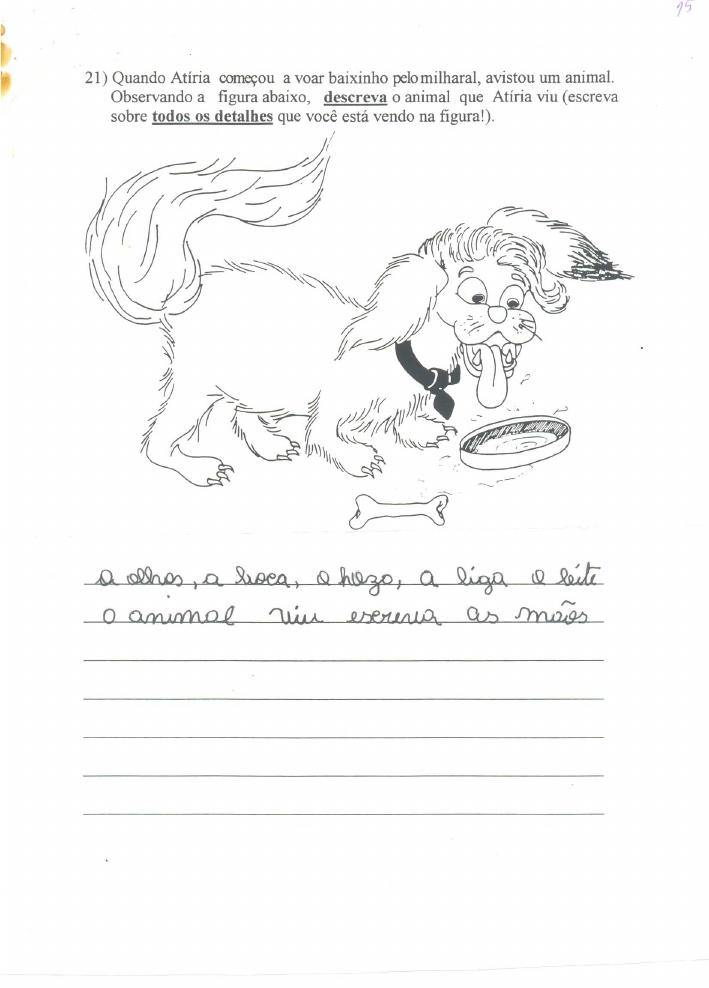 95
21) Quando Atíria começou a voar baixinho pelo milharal, avistou um animal.
Observando a figura abaixo, descreva o animal que Atíria viu (escreva
sobre todos os detalhes que você está vendo na figura!).
a olhos, a boca, o hozo, a liga o leite
o animal viu escreva as mãos